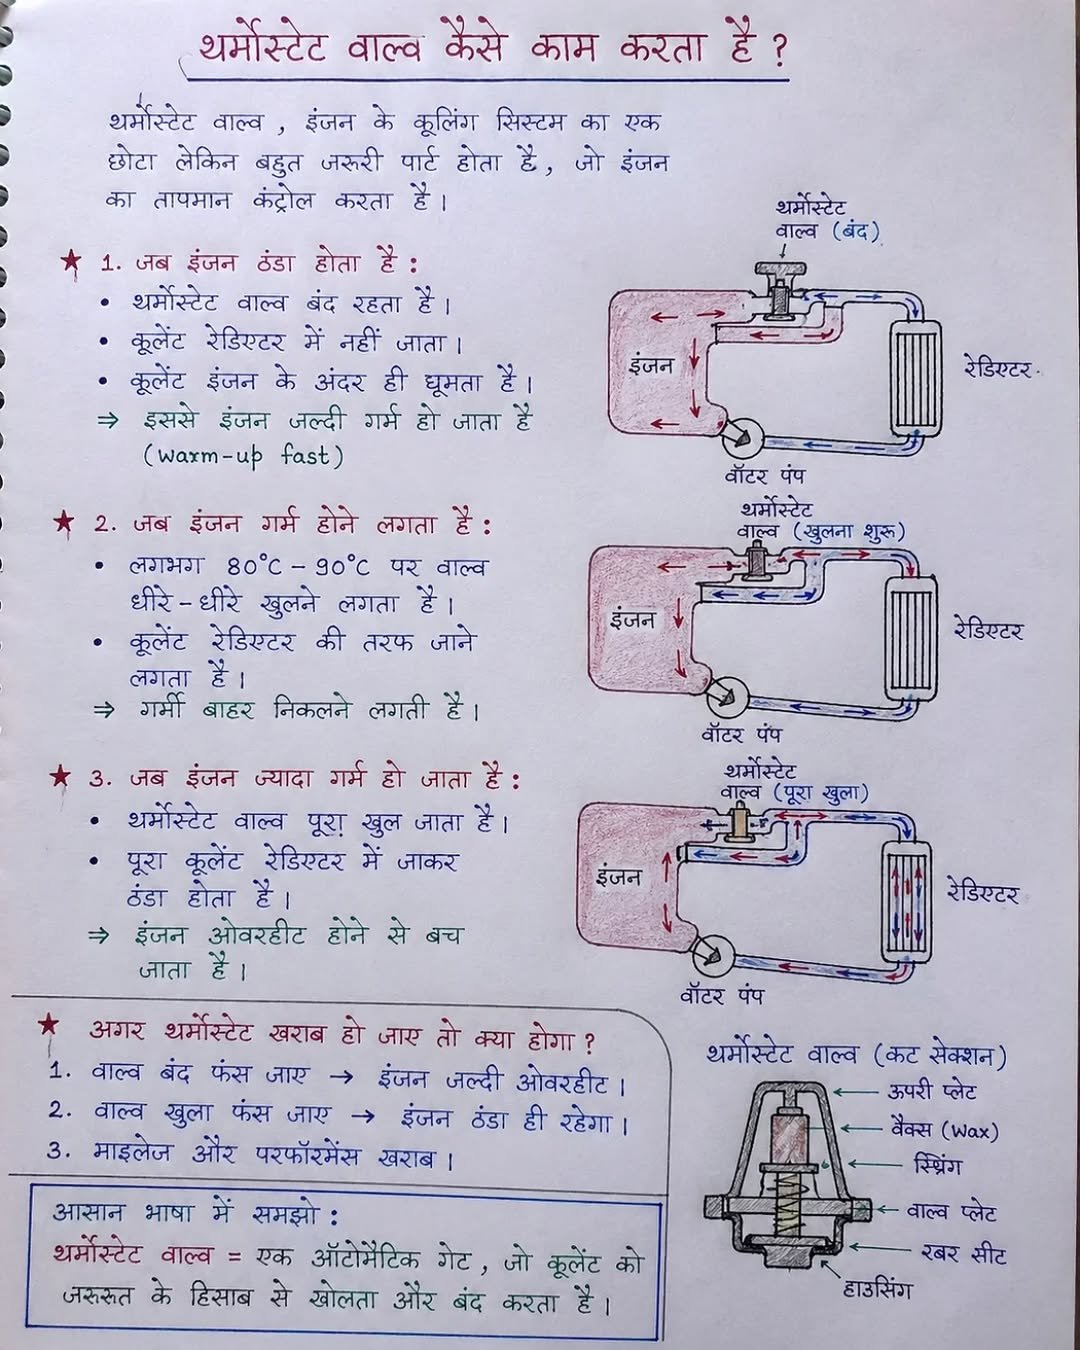 थर्मोस्टेट वाल्व कैसे काम करता है ?
थर्मोस्टेट वाल्व , इंजन के कूलिंग सिस्टम का एक
छोटा लेकिन बहुत जरुरी पार्ट होता है , जो इंजन
का तापमान कंट्रोल करता है ।
★ 1. जब इंजन ठंडा होता है :
• थर्मोस्टेट वाल्व बंद रहता है ।
• कूलेंट रेडिएटर में नहीं जाता ।
• कूलेंट इंजन के अंदर ही घूमता है ।
⇒ इससे इंजन जल्दी गर्म हो जाता है
(warm-up fast)
थर्मोस्टेट
वाल्व (बंद)
इंजन
रेडिएटर
वॉटर पंप
★ 2. जब इंजन गर्म होने लगता है :
• लगभग 80°C – 90°C पर वाल्व
धीरे - धीरे खुलने लगता है ।
• कूलेंट रेडिएटर की तरफ जाने
लगता है ।
⇒ गर्मी बाहर निकलने लगती है ।
थर्मोस्टेट
वाल्व (खुलना शुरू)
इंजन
रेडिएटर
वॉटर पंप
★ 3. जब इंजन ज्यादा गर्म हो जाता है :
• थर्मोस्टेट वाल्व पूरा खुल जाता है ।
• पूरा कूलेंट रेडिएटर में जाकर
ठंडा होता है ।
⇒ इंजन ओवरहीट होने से बच
जाता है ।
थर्मोस्टेट
वाल्व (पूरा खुला)
इंजन
रेडिएटर
वॉटर पंप
★ अगर थर्मोस्टेट खराब हो जाए तो क्या होगा ?
1. वाल्व बंद फंस जाए → इंजन जल्दी ओवरहीट ।
2. वाल्व खुला फंस जाए → इंजन ठंडा ही रहेगा ।
3. माइलेज और परफॉरमेंस खराब ।
आसान भाषा में समझो :
थर्मोस्टेट वाल्व = एक ऑटोमैटिक गेट , जो कूलेंट को
जरूरत के हिसाब से खोलता और बंद करता है ।
थर्मोस्टेट वाल्व (कट सेक्शन)
ऊपरी प्लेट
वैक्स (Wax)
स्प्रिंग
वाल्व प्लेट
रबर सीट
हाउसिंग